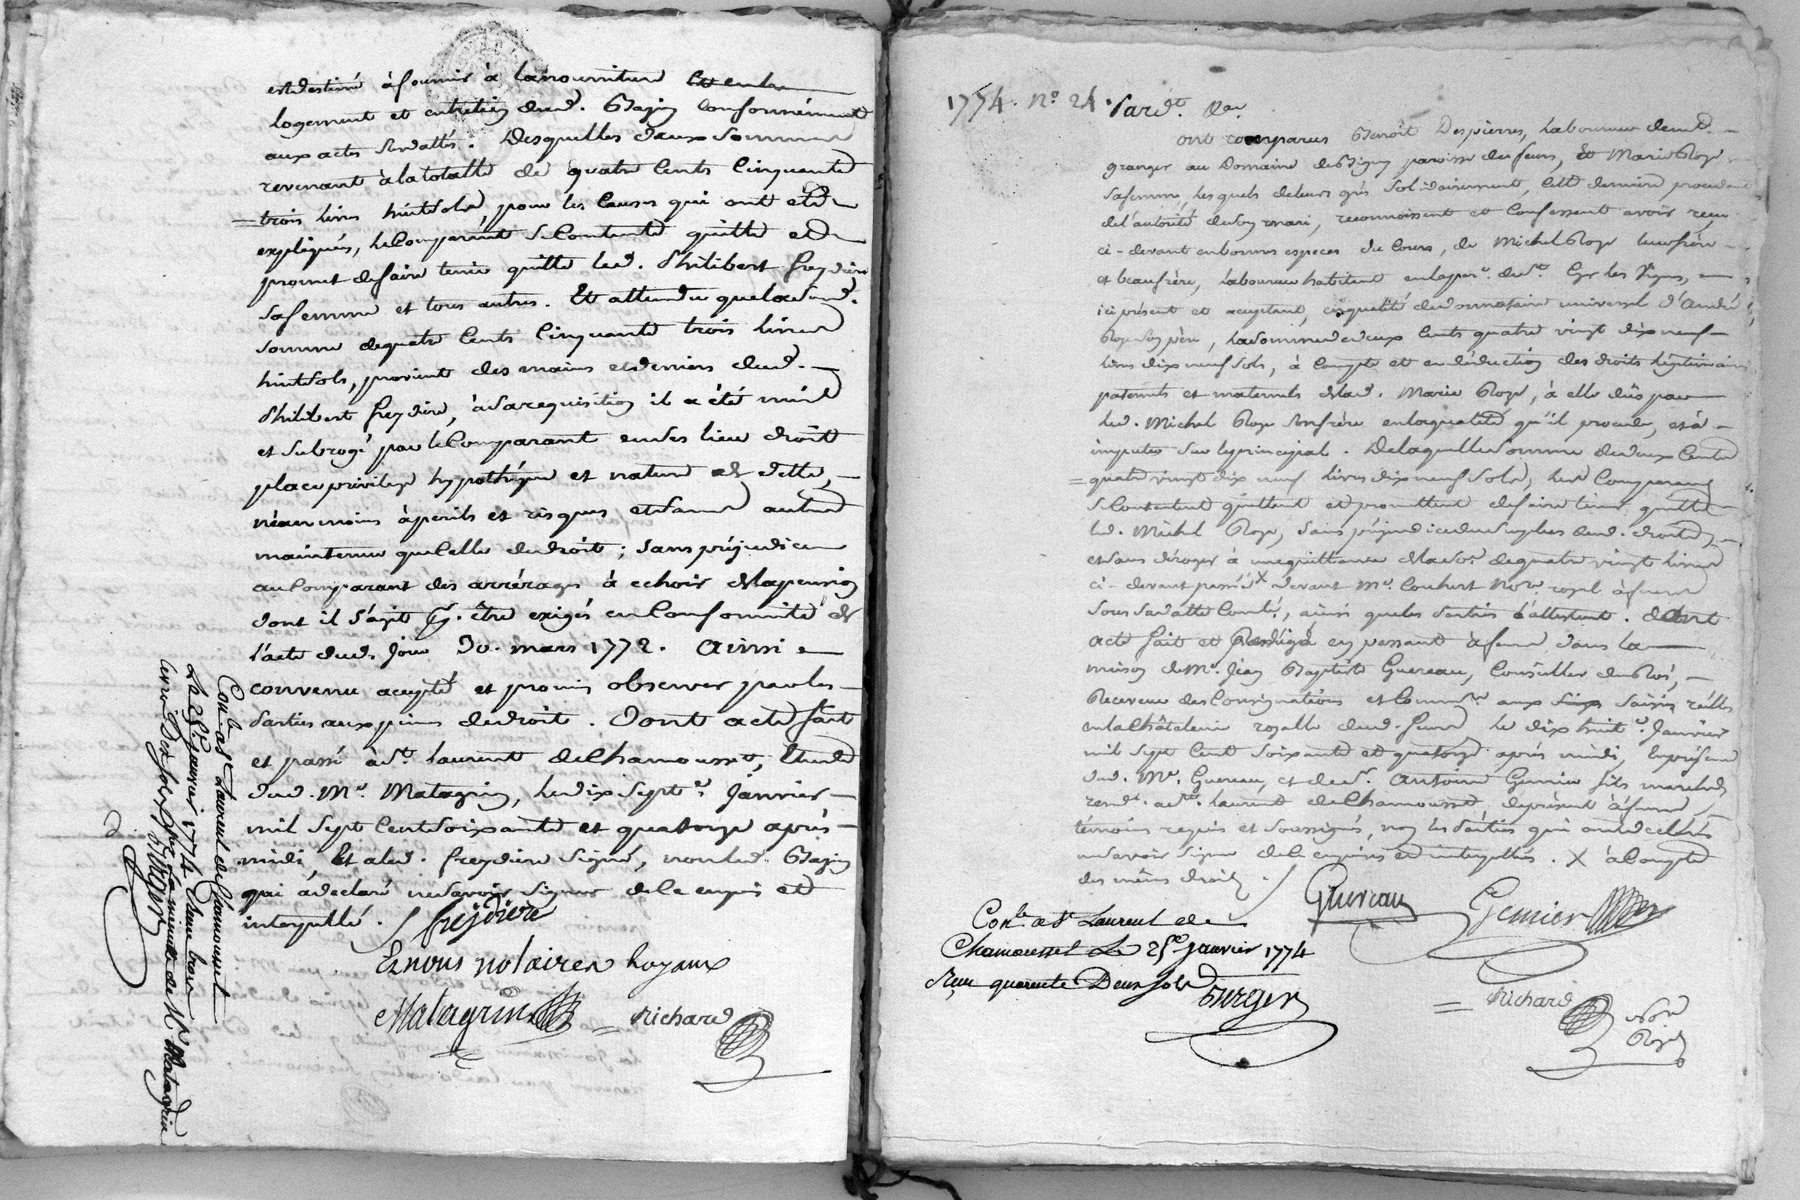 est destiné à fournir à la nourriture
logement et entretien dud. Bazin conformément
aux actes susdattés. Desquelles deux sommes
revenant à la totalle de quatre cents cinquante
= trois livres huit sols, pour les causes qui ont été
expliquées, le comparant se contente quitte et
promet de faire tenir quitte led. Philibert freydiere
sa femme et tous autres. Et attendu que lad.
somme de quatre cents cinquante trois livres
huit sols, provient des mains et deniers dud.
Philibert freydiere, à sa requisition il a été mis
et subrogé par le comparant en ses lieu droit
place privilege hypothéque et nature de dette,
néanmoins à perils et risques et sans autre
maintenue que celle de droit ; sans préjudice
au comparant des arrérages à echoir de la pension
dont il s'agit pr. être exigés en conformité de
l'acte dud. jour 30. mars 1772. Ainsi
convenu accepté et promis observer par les
parties aux peines de droit. Dont acte fait
et passé à St. laurent de Chamousset, Etude
dud. Me. Matagrin, le dix sept.e Janvier
mil sept cent soixante et quatorze après
midi, Et a led. freydiere signé, non led. Bazin
qui a declaré ne savoir signer de ce enquis et
interpellé.
freidiere
Et nous notaires Royaux
Matagrin = Richard
Con.lé a St Laurent de Chamousset
Le 25e. janvier 1774 Reçu trois
livres dix sols sur la minutte de Me. Matagrin
Burger
1774. No. 21. Pardt. &a.
ont comparus Benoît Despierres, Laboureur demt.
granger au Domaine de paroisse de feurs, Et Marie Roze
sa femme, lesquels de leurs grés solidairement, cette derniere procedant
de l'autorité de son mari, reconnoissent et confessent avoir reçu
ci-devant en bonnes especes du cours, de Michel Roze leur frère
et beaufrère, Laboureur habitant en la par.e de St. Cyr les Vignes,
ici présent et acceptant, en qualité de donnataire universel d'André
Roze son père, la somme de deux cents quatre vingt dix neuf
livres dix neuf sols, à compte et en déduction des droits légitimaires
paternels et maternels de lad. Marie Roze, à elle dûs par
led. Michel Roze son frère en la qualité qu'il procede, et à
imputer sur le principal. De laquelle somme de deux cents
= quatre vingt dix neuf livres dix neuf sols, les comparans
se contentent quittent et promettent de faire tenir quitte
led. Michel Roze, sans préjudice du surplus desd. droits,
et sans déroger à une quittance de la so.e de quatre vingt livres
ci-devant passée X devant Me. Coubert No.re royal à feurs
sous sa datte Conlé., ainsi que les Parties l'attestent. dont
acte fait et Redigé en passant à feurs dans la
maison de Me. Jean Baptiste Guereau, Conseiller du Roi,
Receveur des Consignations et Comm.re aux saisies réelles
en la châtelenie royalle dud. feurs le dix huit.e Janvier
mil sept cent soixante et quatorze après midi, En présence
dud. Me. Guereau, et de Sr. Antoine Gemier fils marchand
resid.t à St. laurent de Chamousset, de présent à feurs,
témoins requis et soussignés, non les Parties qui ont declaré
ne savoir signer de ce enquises et interpellées. X à compte
des mêmes droits.
Guereau Gemier
Con.lé a St Laurent de
Chamousset Le 25e. janvier 1774
Reçu quarente Deux sols
Burger
= Richard
No.re
Royal